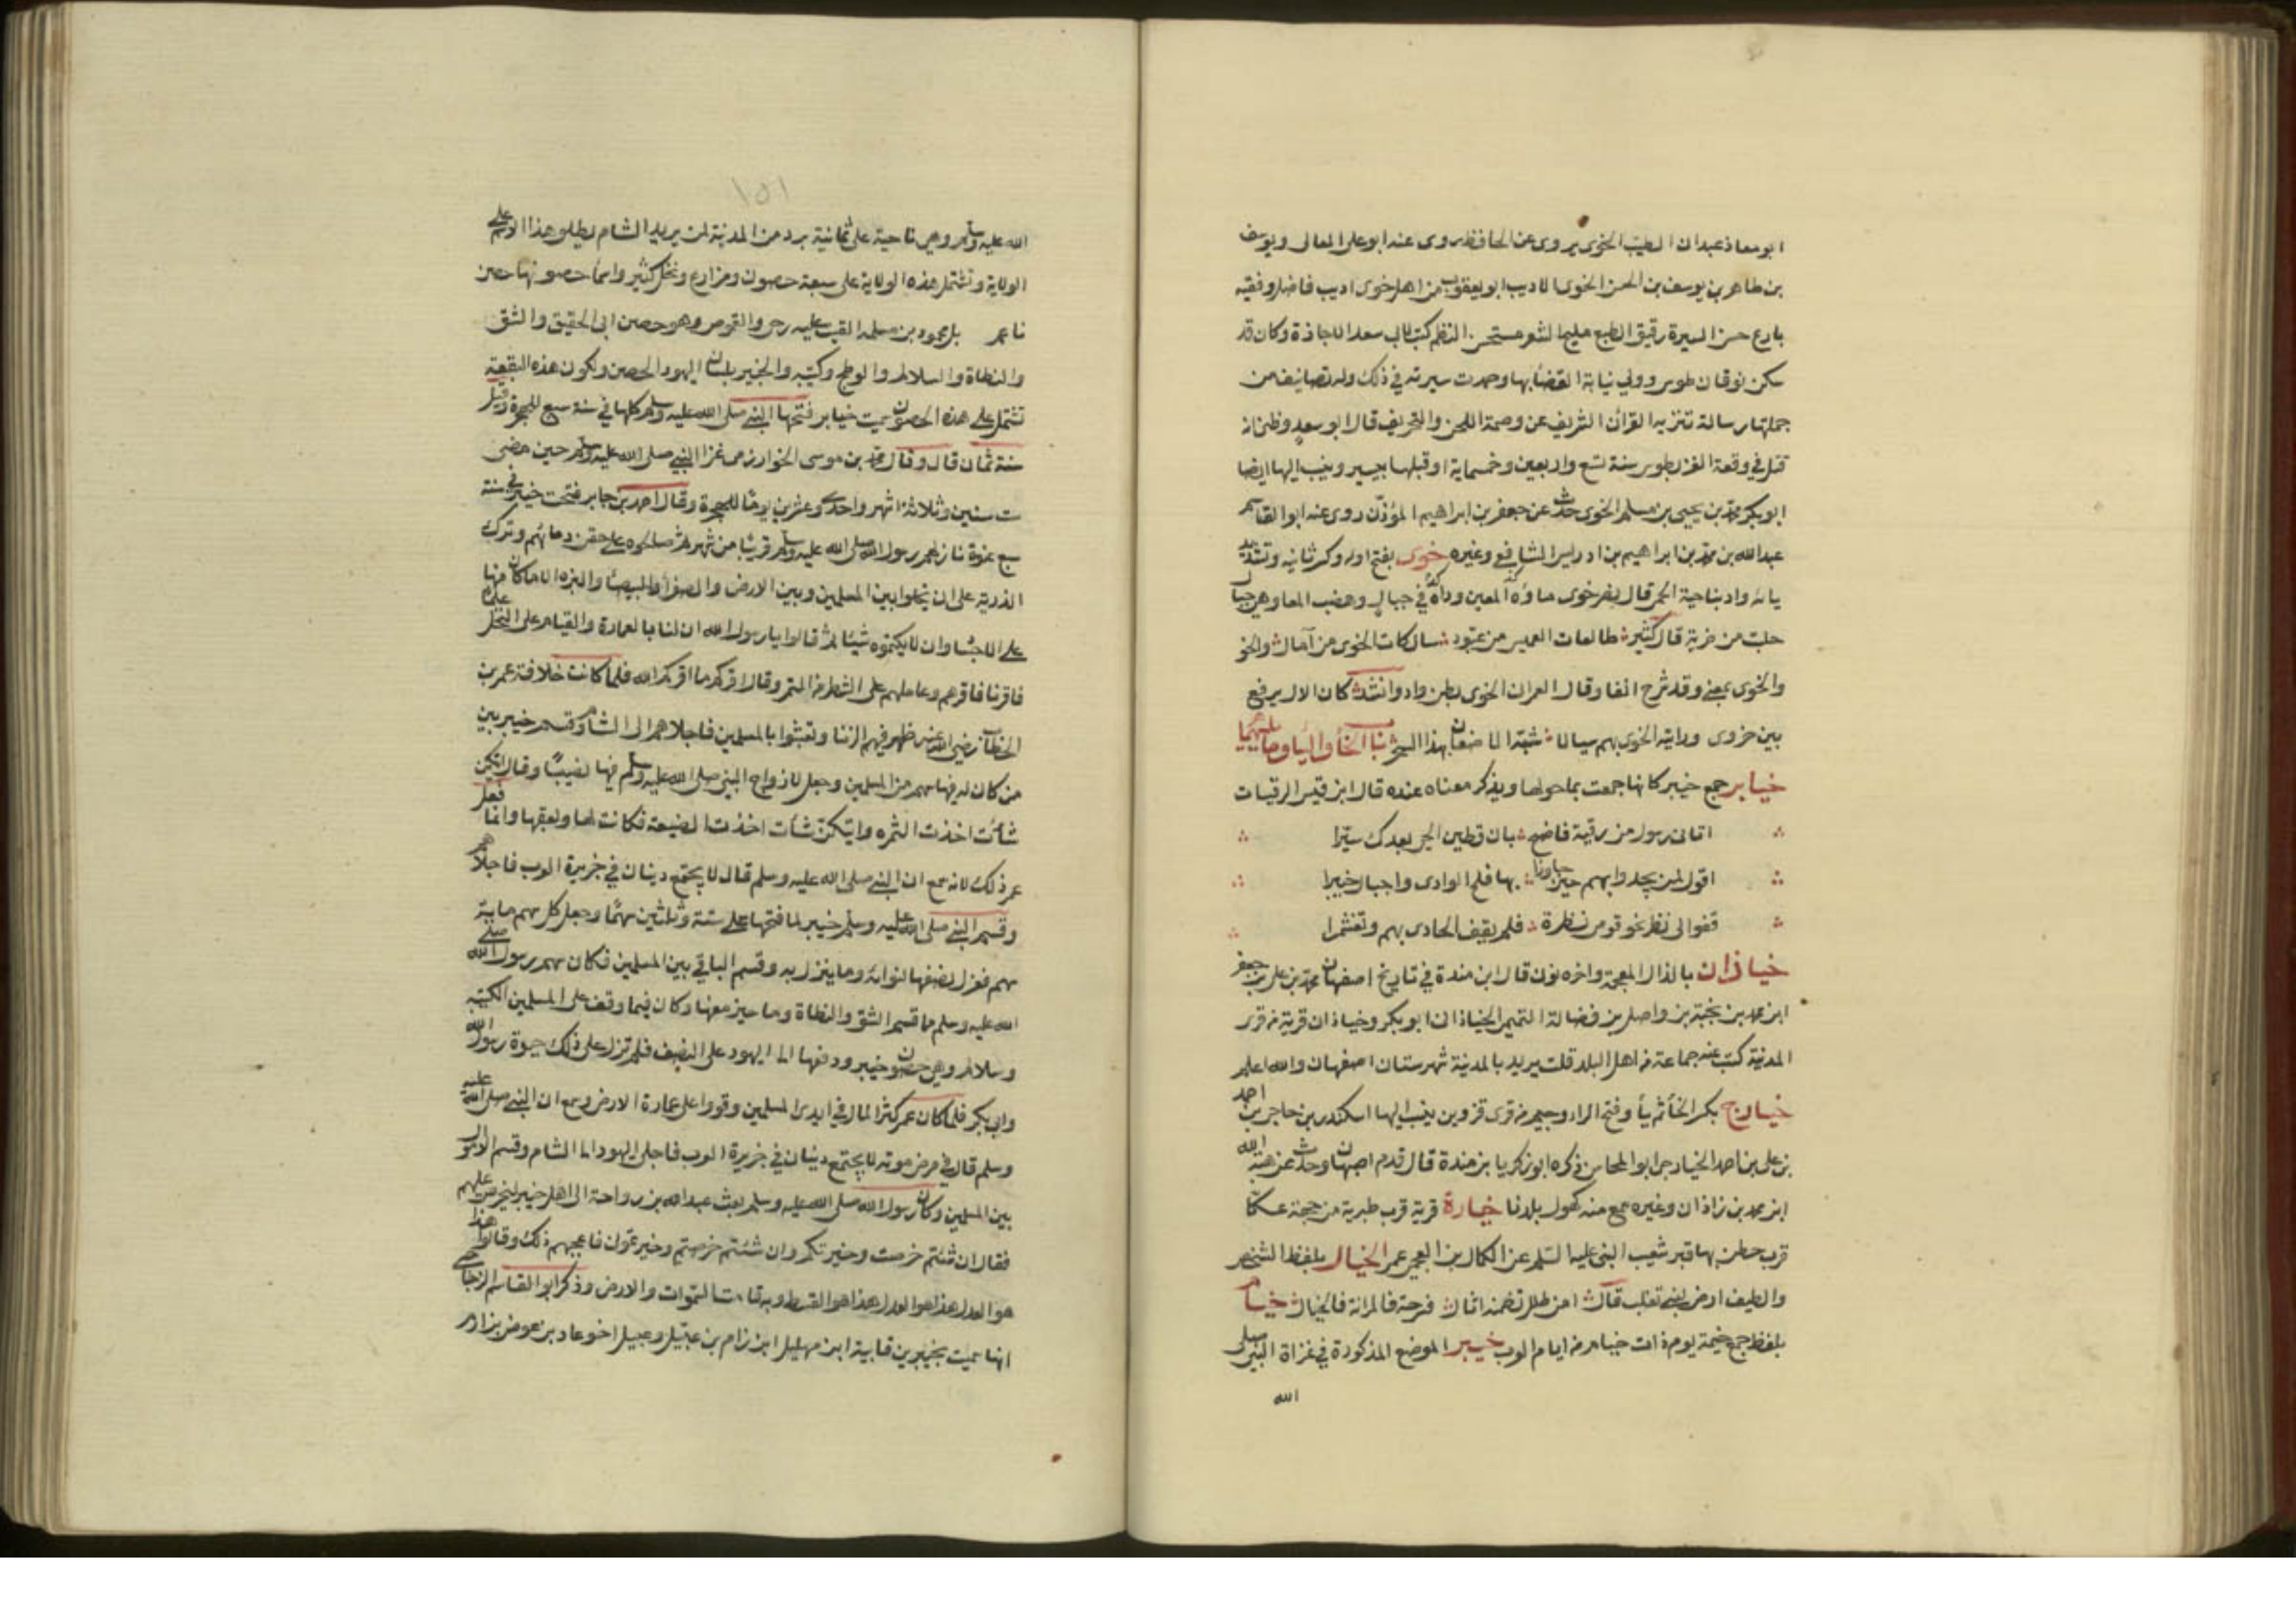 ابو معاذ عبدان الطيب الخوى يروى عن الحافظ روى عنه ابو على المعالى ويوسف
بن طاهر بن يوسف بن الحسن الخوى الاديب ابو يعقوب من اهل خوى اديب فاضل وفقيه
بارع حسن السيرة رقيق الطبع مليح الشعر مستحسن النظم كتب لابى سعد الاجازة وكان قد
سكن نوقان طوس وولي نيابة القضا بها وحمدت سيرته في ذلك وله تصانيف من
جملتها رسالة تنزيه القرآن الشريف عن وصمة اللحن والتحريف قال ابو سعد وظنى انه
قتل في وقعة الغز بطوس سنة تسع واربعين وخمسماية او قبلها بيسير وينسب اليها ايضا
ابو بكر محمد بن يحيى بن مسلم الخوى حدث عن جعفر بن ابراهيم المؤذن روى عنه ابو القاسم
عبد الله بن محمد بن ابراهيم بن ادريس الشافعي وغيره خوى بفتح اوله وكسر ثانيه وتشديد
يائه واد بناحية الحمى قال نصر خوى ماؤه المعين وداه في جبال وهضب المعا وهى جبال
حلت من ضرية قال كثير طالعات الغميس من عبود سالكات الخوى من آمال والخو
والخوى بمعنى وقد شرح انفا وقال العمرانى الخوى بطن واد وانشد كان الال يرفع
بين حزوى ورابية الخوى بهم سيالا شبه الاضعان بهذا الشجر باب الخا واليا وما يليهما
خيابر جمع خيبر كانها جمعت بما حولها ويذكر معناه عنده قال ابن قيس الرقيات
اتانى رسول من رقية فاضح بان قطين الحي بعدك سيرا
اقول لمن يحدوا بهم حين جاوزوا بها فلج الوادى واجبال خيبرا
قفوا لى نظر نحو قومى نظرة فلم يقف الحادى بهم وتغشمرا
خياذان بالذال المعجمة واخره نون قال ابن مندة في تاريخ اصفهان محمد بن على بن جعفر
ابن محمد بن نجبة بن واصل بن فضالة التميمى الخياذانى ابو بكر وخياذان قرية من قرى
المدينة كتب عنه جماعة من اهل البلد قلت يريد بالمدينة شهرستان اصفهان والله اعلم
خيارج بكسر الخا ثم يأ وفتح الرا وجيم من قرى قزوين ينسب اليها اسكندر بن حاجى بن احمد
بن على بن احمد الخيارجى ابو المحاسن ذكره ابو زكريا بن مندة قال قدم اصبهان وحدث عن هبة الله
ابن محمد بن زاذان وغيره سمع منه كهول بلدنا خيارة قرية قرب طبرية من جهة عكا
قرب حطين بها قبر شعيب النبى عليه السلم عن الكمال بن العجمى عمر الخيال بلفظ الشخص
والطيف ارض لبنى تغلب قال لمن طلل تضمنه اثال فرحة فالمرانة فالخيال خيام
بلفظ جمع خيمة يوم ذات خيام من ايام العرب خيبر الموضع المذكورة في غزاة النبى صلى
الله
١٥١
الله عليه وسلم وهى ناحية على ثمانية برد من المدينة لمن يريد الشام يطلق هذا الاسم على
الولاية وتشتمل هذه الولاية على سبعة حصون ومزارع ونخل كثير واسما حصونها حصن
ناعم بل محمود بن مسلمه القيت عليه رحى والقموص وهو حصن ابى الحقيق والشق
والنطاة والسلالم والوطيح وكتيبه والخيبر بلسان اليهود الحصن ولكون هذه البقعة
تشتمل على هذه الحصون سميت خيابر فتحها النبى صلى الله عليه وسلم كلها في سنة سبع للهجرة وقيل
سنة ثمان قال وقال محمد بن موسى الخوارزمى غزا النبى صلى الله عليه وسلم حين مضى
ست سنين وثلاثة اشهر واحدى وعشرين يوما للهجرة وقال احمد بن جابر فتحت خيبر في سنة
سبع عنوة نازلهم رسول الله صلى الله عليه وسلم قريبا من شهر ثم صالحوه على حقن دمائهم وترك
الذرية على ان يخلوا بين المسلمين وبين الارض والصفرا والبيضا والبزه الا ما كان منها
على الاجسا وان لا يكتموه شيئا ثم قالوا يا رسول الله ان لنا بالعمارة والقيام على النخل علما
فاقرنا فاقرهم وعاملهم على الشطر من التمر وقال اقركم ما اقركم الله فلما كانت خلافة عمر بن
الخطاب رضى الله عنه ظهر فيهم الزنا وتعبثوا بالمسلمين فاجلاهم الى الشام وقسم خيبر بين
من كان له فيها سهم من المسلمين وجعل لازواج النبى صلى الله عليه وسلم فيها نصيبا وقال ايتكن
شأت اخذت الثمره وايتكن شأت اخذت الضيعة فكانت لها ولعقبها وانما فعل
عمر ذلك لانه سمع ان النبى صلى الله عليه وسلم قال لا يجتمع دينان في جزيرة العرب فاجلاهم
وقسم النبى صلى الله عليه وسلم خيبر لما فتحها على ستة وثلثين سهما وجعل كل سهم ماية
سهم فعزل نصفها لنوائه وما ينزل به وقسم الباقي بين المسلمين فكان سهم رسول الله صلى
الله عليه وسلم ما قسم الشق والنطاة وما حيز معها وكان فيما وقف على المسلمين الكتيبه
وسلالم وهى حصون خيبر ودفعها الى اليهود على النصف فلم تزل على ذلك حيوة رسول الله
وابى بكر فلما كان عمر كثر المال في ايدى المسلمين وقووا على عمارة الارض وسمع ان النبى صلى الله عليه
وسلم قال في مرض موته لا يجتمع دينان في جزيرة العرب فاجلى اليهود الى الشام وقسم الاموال
بين المسلمين وكان رسول الله صلى الله عليه وسلم بعث عبد الله بن رواحة الى اهل خيبر ليخرص عليهم
فقال ان شئتم خرصت وخيرتكم وان شئتم خرصتم وخيرتمون فاعجبهم ذلك وقالوا هذا
هو العدل هذا هو العدل هذا هو القسط وبه قامت السموات والارض وذكر ابو القاسم الزجاجى
انها سميت بخيبر بن قانية ابن مهليل ابن زام بن عبيل وعبيل اخو عاد بن عوض بن ارم